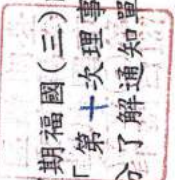 期福國(三)
「第十次理事
分了解通知單